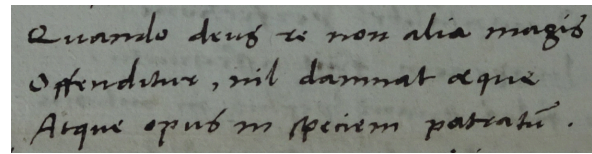 Quando deus re non alia magis
Offenditur, nil damnat æque
Atque opus in speciem patratū.